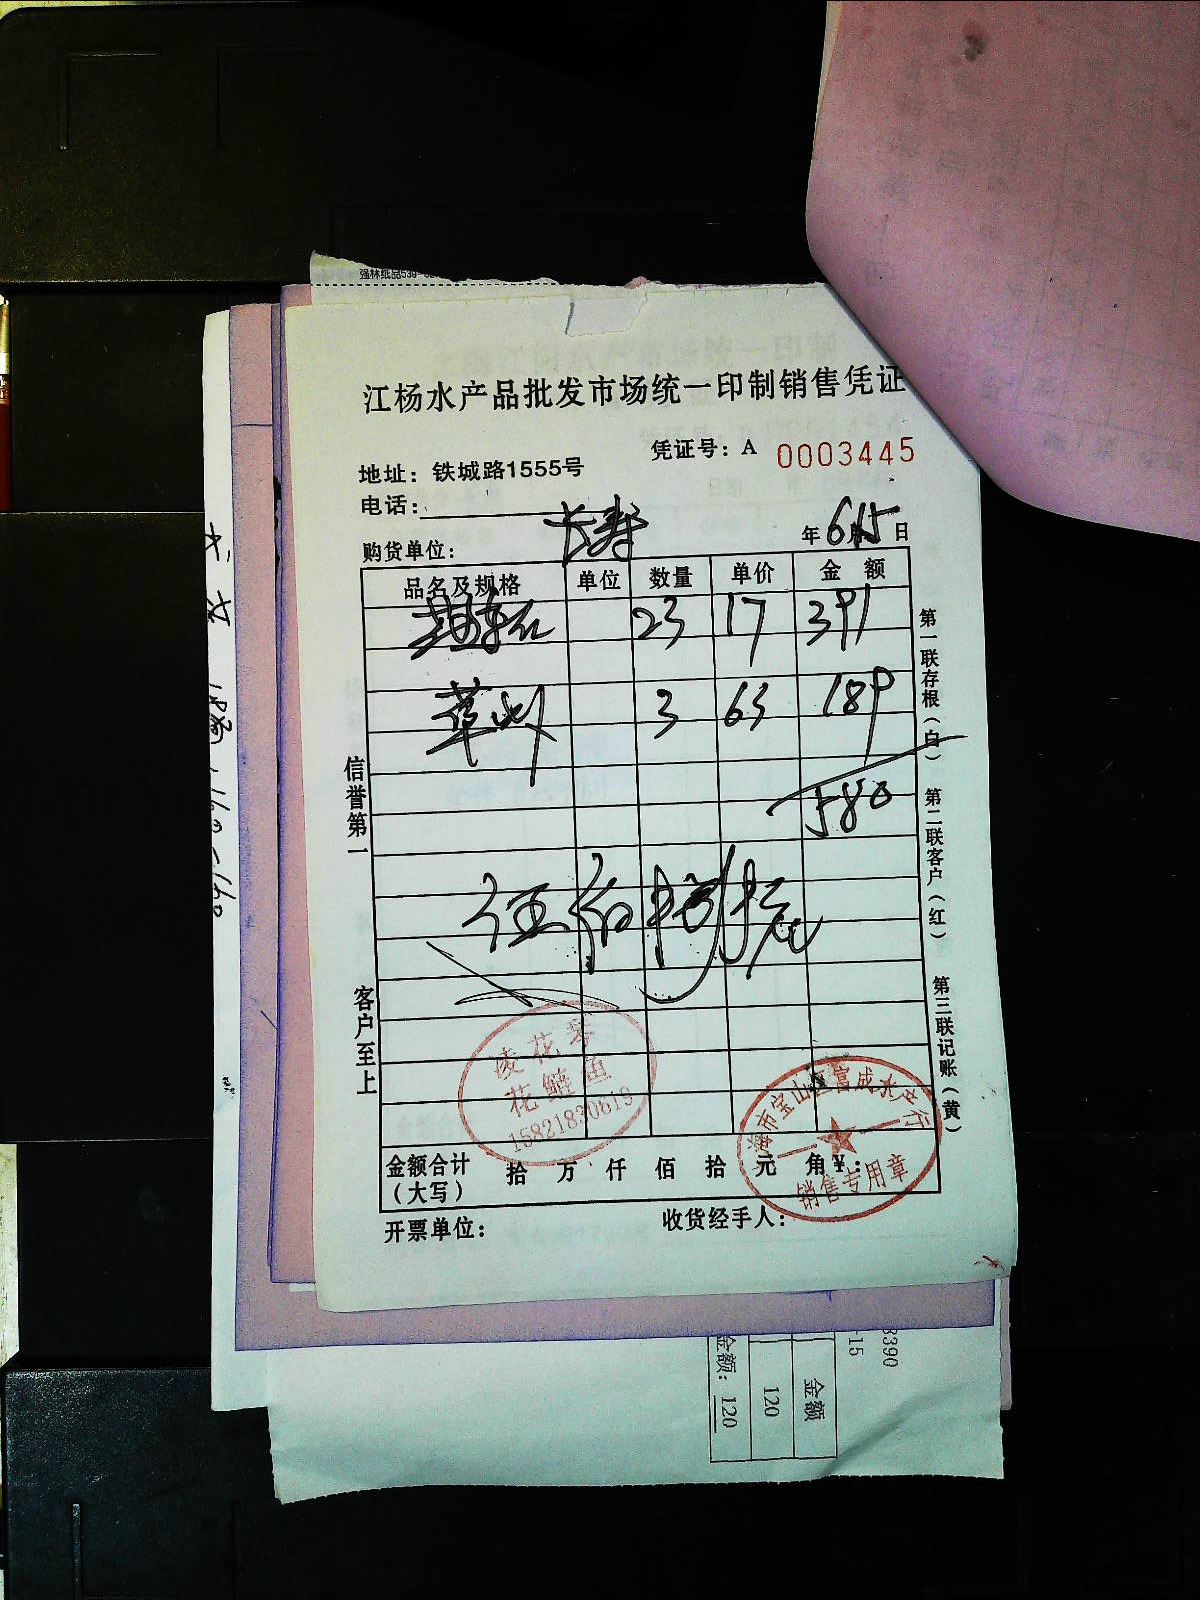 强林纸品539-
江杨水产品批发市场统一印制销售凭证
凭证号：A 0003445
地址：铁城路1555号
电话：
购货单位： 长寿 年6月15日
品名及规格 单位 数量 单价 金额
23 17 391
3 63 189
580
伍佰捌拾元
金额合计（大写） 拾 万 仟 佰 拾 元 角 ￥：
开票单位： 收货经手人：
信誉第一
客户至上
第一联存根（白）
第二联客户（红）
第三联记账（黄）
凌花琴
花鲢鱼
15821830619
海市宝山区富成水产行
销售专用章
8390
-15
金额
120
金额：120